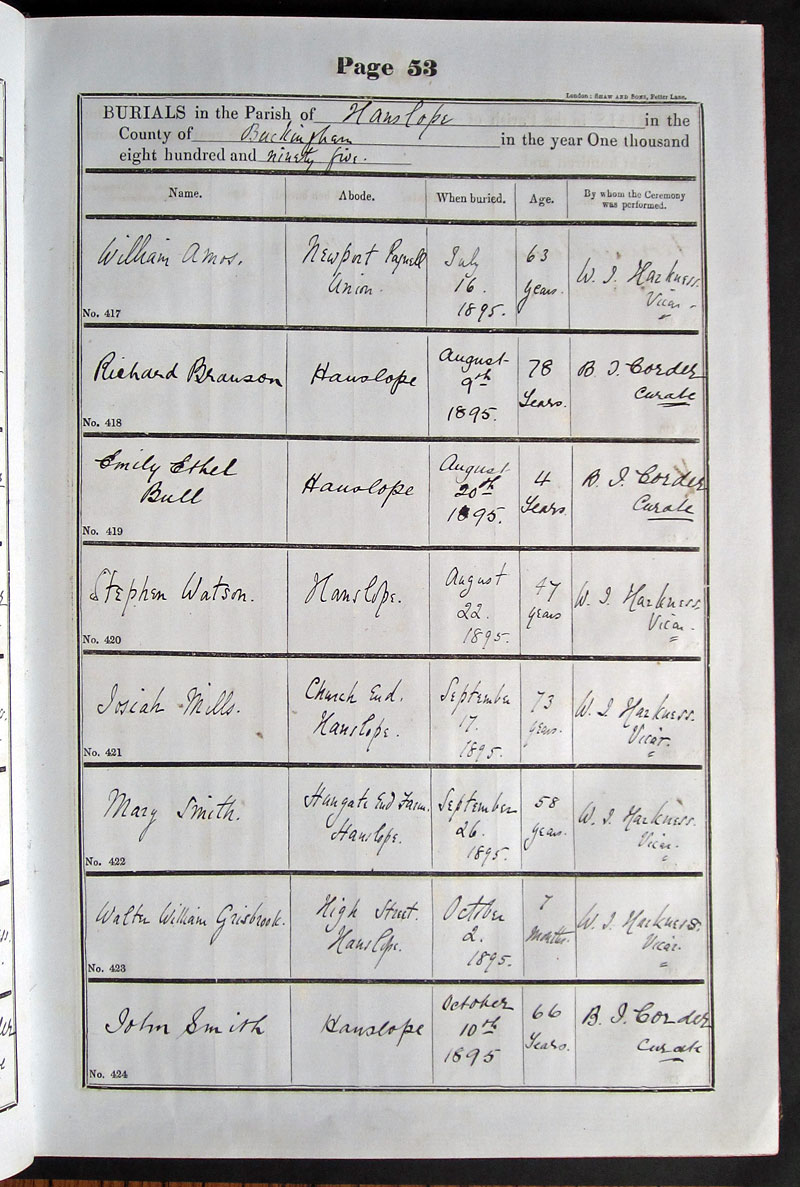 Page 53
London: SHAW AND SONS, Fetter Lane.
BURIALS in the Parish of Hanslope in the
County of Buckingham in the year One thousand
eight hundred and ninety five.
Name. Abode. When buried. Age. By whom the Ceremony was performed.
William Amos. Newport Pagnell July 63 W. J. Harkness.
Union. 16. years. Vicar.
No. 417 1895.
Richard Branson Hanslope August 78 B. J. Corder
9th Years. Curate
No. 418 1895.
Emily Ethel Hanslope August 4 B. J. Corder
Bull 20th Years. Curate
No. 419 1895.
Stephen Watson. Hanslope. August 47 W. J. Harkness.
22. years Vicar.
No. 420 1895.
Josiah Mills. Church End. September 73 W. J. Harkness.
Hanslope. 17. years. Vicar.
No. 421 1895.
Mary Smith. Hungate End Farm. September 58 W. J. Harkness.
Hanslope. 26. years. Vicar.
No. 422 1895.
Walter William Grisbrook. High Street. October 7 W. J. Harkness.
Hanslope. 2. months. Vicar.
No. 423 1895.
John Smith Hanslope October 66 B. J. Corder
10th Years. Curate
No. 424 1895